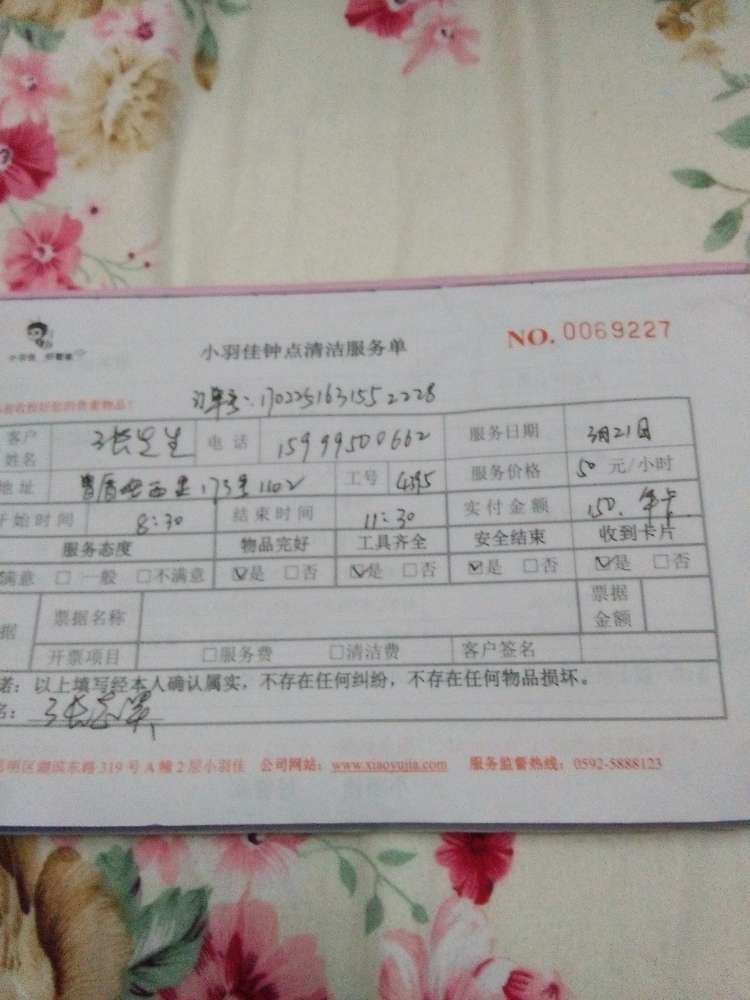 小羽佳 好管家
小羽佳钟点清洁服务单
NO. 0069227
收好您的贵重物品!
订单号:1702251631552228
客户姓名 张先生 电话 15999500662 服务日期 3月21日
地址 西里173号1102 工号 4395 服务价格 50元/小时
开始时间 8:30 结束时间 11:30 实付金额 150.年卡
服务态度 物品完好 工具齐全 安全结束 收到卡片
满意 □一般 □不满意 ☑是 □否 ☑是 □否 ☑是 □否 ☑是 □否
据 票据名称 票据金额
开票项目 □服务费 □清洁费 客户签名
诺:以上填写经本人确认属实,不存在任何纠纷,不存在任何物品损坏。
名:张
明区湖滨东路319号A幢2层小羽佳 公司网站:www.xiaoyujia.com 服务监督热线:0592-5888123